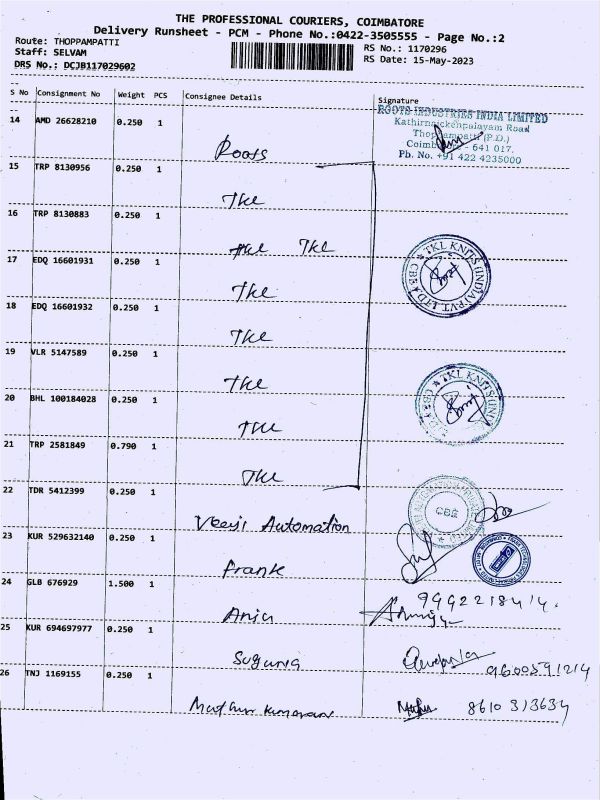 THE PROFESSIONAL COURIERS, COIMBATORE
Delivery Runsheet - PCM - Phone No.:0422-3505555 - Page No.:2
Route: THOPPAMPATTI
RS No.: 1170296
Staff: SELVAM
RS Date: 15-May-2023
DRS No.: DCJB117029602
S No Consignment No Weight PCS Consignee Details Signature
14 AMD 26628210 0.250 1
ROOTS INDUSTRIES INDIA LIMITED
Kathirnaickenpalayam Road
Thoppampatti (P.D.)
- 641 017.
Ph. No. +91 422 4235000
Roots
15 TRP 8130956 0.250 1
TKL
16 TRP 8130883 0.250 1
TKL TKL
17 EDQ 16601931 0.250 1
TKL KNITS (INDIA) PVT. LTD. CBE
TKL
18 EDQ 16601932 0.250 1
TKL
19 VLR 5147589 0.250 1
TKL
20 BHL 100184028 0.250 1
TKL KNITS (INDIA)
CBE
TKL
21 TRP 2581849 0.790 1
TKL
22 TDR 5412399 0.250 1
CBE
Veeji Automation
23 KUR 529632140 0.250 1
Prank
24 GLB 676929 1.500 1
9992218414.
Anju
25 KUR 694697977 0.250 1
Suguna
9600591214
26 TNJ 1169155 0.250 1
Mathan Kumaran
8610313634